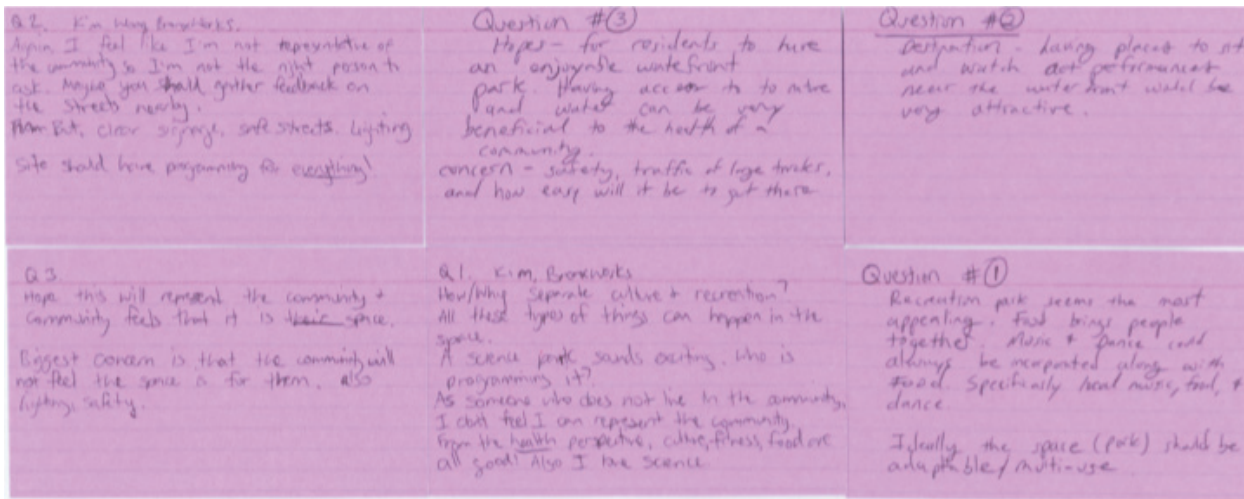 Q2. Kim, Wong BronxWorks.
Again I feel like I'm not representative of
the community so I'm not the right person to
ask. Maybe you should gather feedback on
the streets nearby.
But, clear signage, safe streets. Lighting
Site should have programming for everything!
Question #3
Hopes - for residents to have
an enjoyable waterfront
park. Having access to nature
and water can be very
beneficial to the health of a
community.
concern - safety, traffic of large trucks,
and how easy will it be to get there
Question #2
Destination - having places to sit
and watch performances
near the waterfront would be
very attractive.
Q3.
Hope this will represent the community +
community feels that it is their space.
Biggest concern is that the community will
not feel the space is for them. Also
lighting, safety.
Q1. Kim, BronxWorks
How/Why separate culture + recreation?
All these types of things can happen in the
space.
A science park sounds exciting. Who is
programming it?
As someone who does not live in the community,
I don't feel I can represent the community.
From the health perspective, culture, fitness, food are
all good! Also I love science
Question #1
Recreation park seems the most
appealing. Food brings people
together. Music & Dance could
always be incorporated along with
Food. Specifically local music, food, &
dance.
Ideally the space (park) should be
adaptable/multi-use